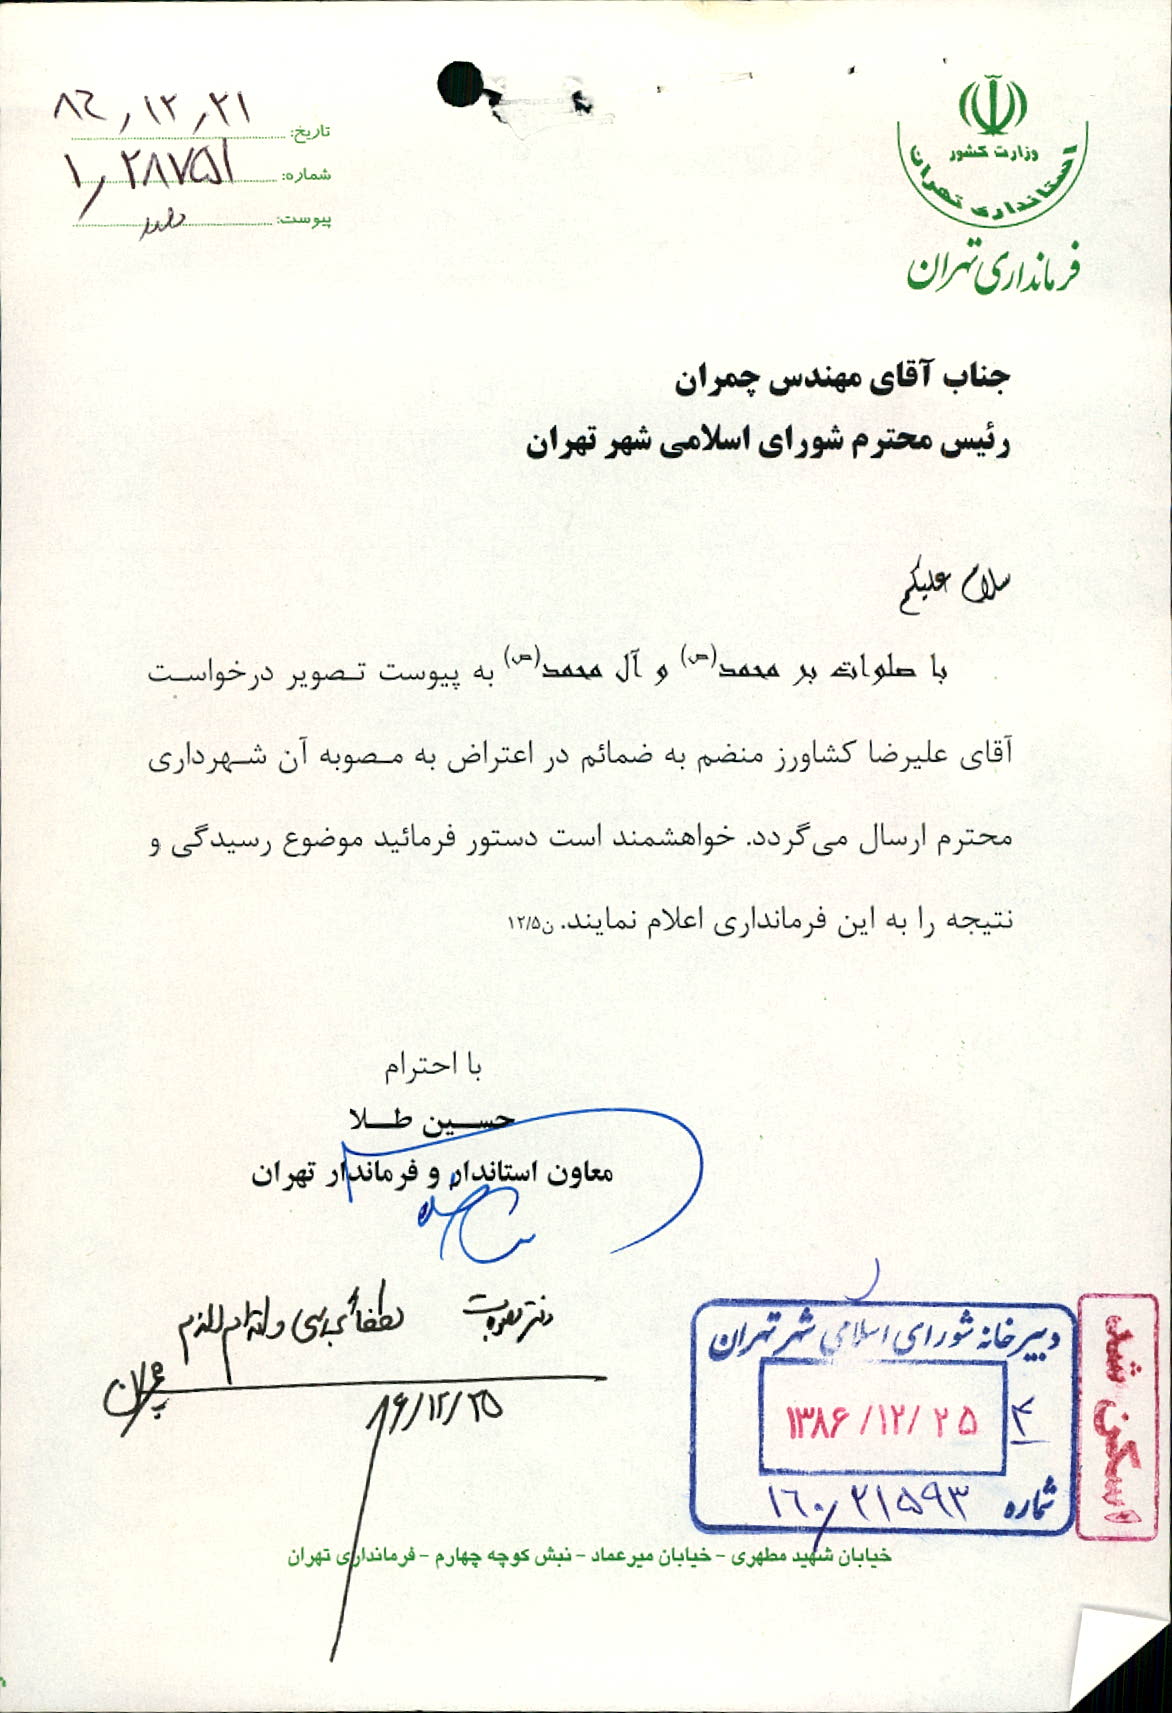 وزارت کشور
استانداری تهران
فرمانداری تهران
تاریخ: ۸۶/۱۲/۲۱
شماره: ۱/۲۸۷۵۱
پیوست: دارد
جناب آقای مهندس چمران
رئیس محترم شورای اسلامی شهر تهران
سلام علیکم
با صلوات بر محمد(ص) و آل محمد(ص) به پیوست تصویر درخواست
آقای علیرضا کشاورز منضم به ضمائم در اعتراض به مصوبه آن شهرداری
محترم ارسال می‌گردد. خواهشمند است دستور فرمائید موضوع رسیدگی و
نتیجه را به این فرمانداری اعلام نمایند. ن۱۲/۵
با احترام
حسین طلا
معاون استاندار و فرماندار تهران
دفتر مصوبات لطفاً بررسی و اقدام لازم
چمران
۸۶/۱۲/۲۵
دبیرخانه شورای اسلامی شهر تهران
۱۳۸۶/۱۲/۲۵
۴
شماره ۱۶۰/۲۱۵۹۳
اسکن شد
خیابان شهید مطهری - خیابان میرعماد - نبش کوچه چهارم - فرمانداری تهران